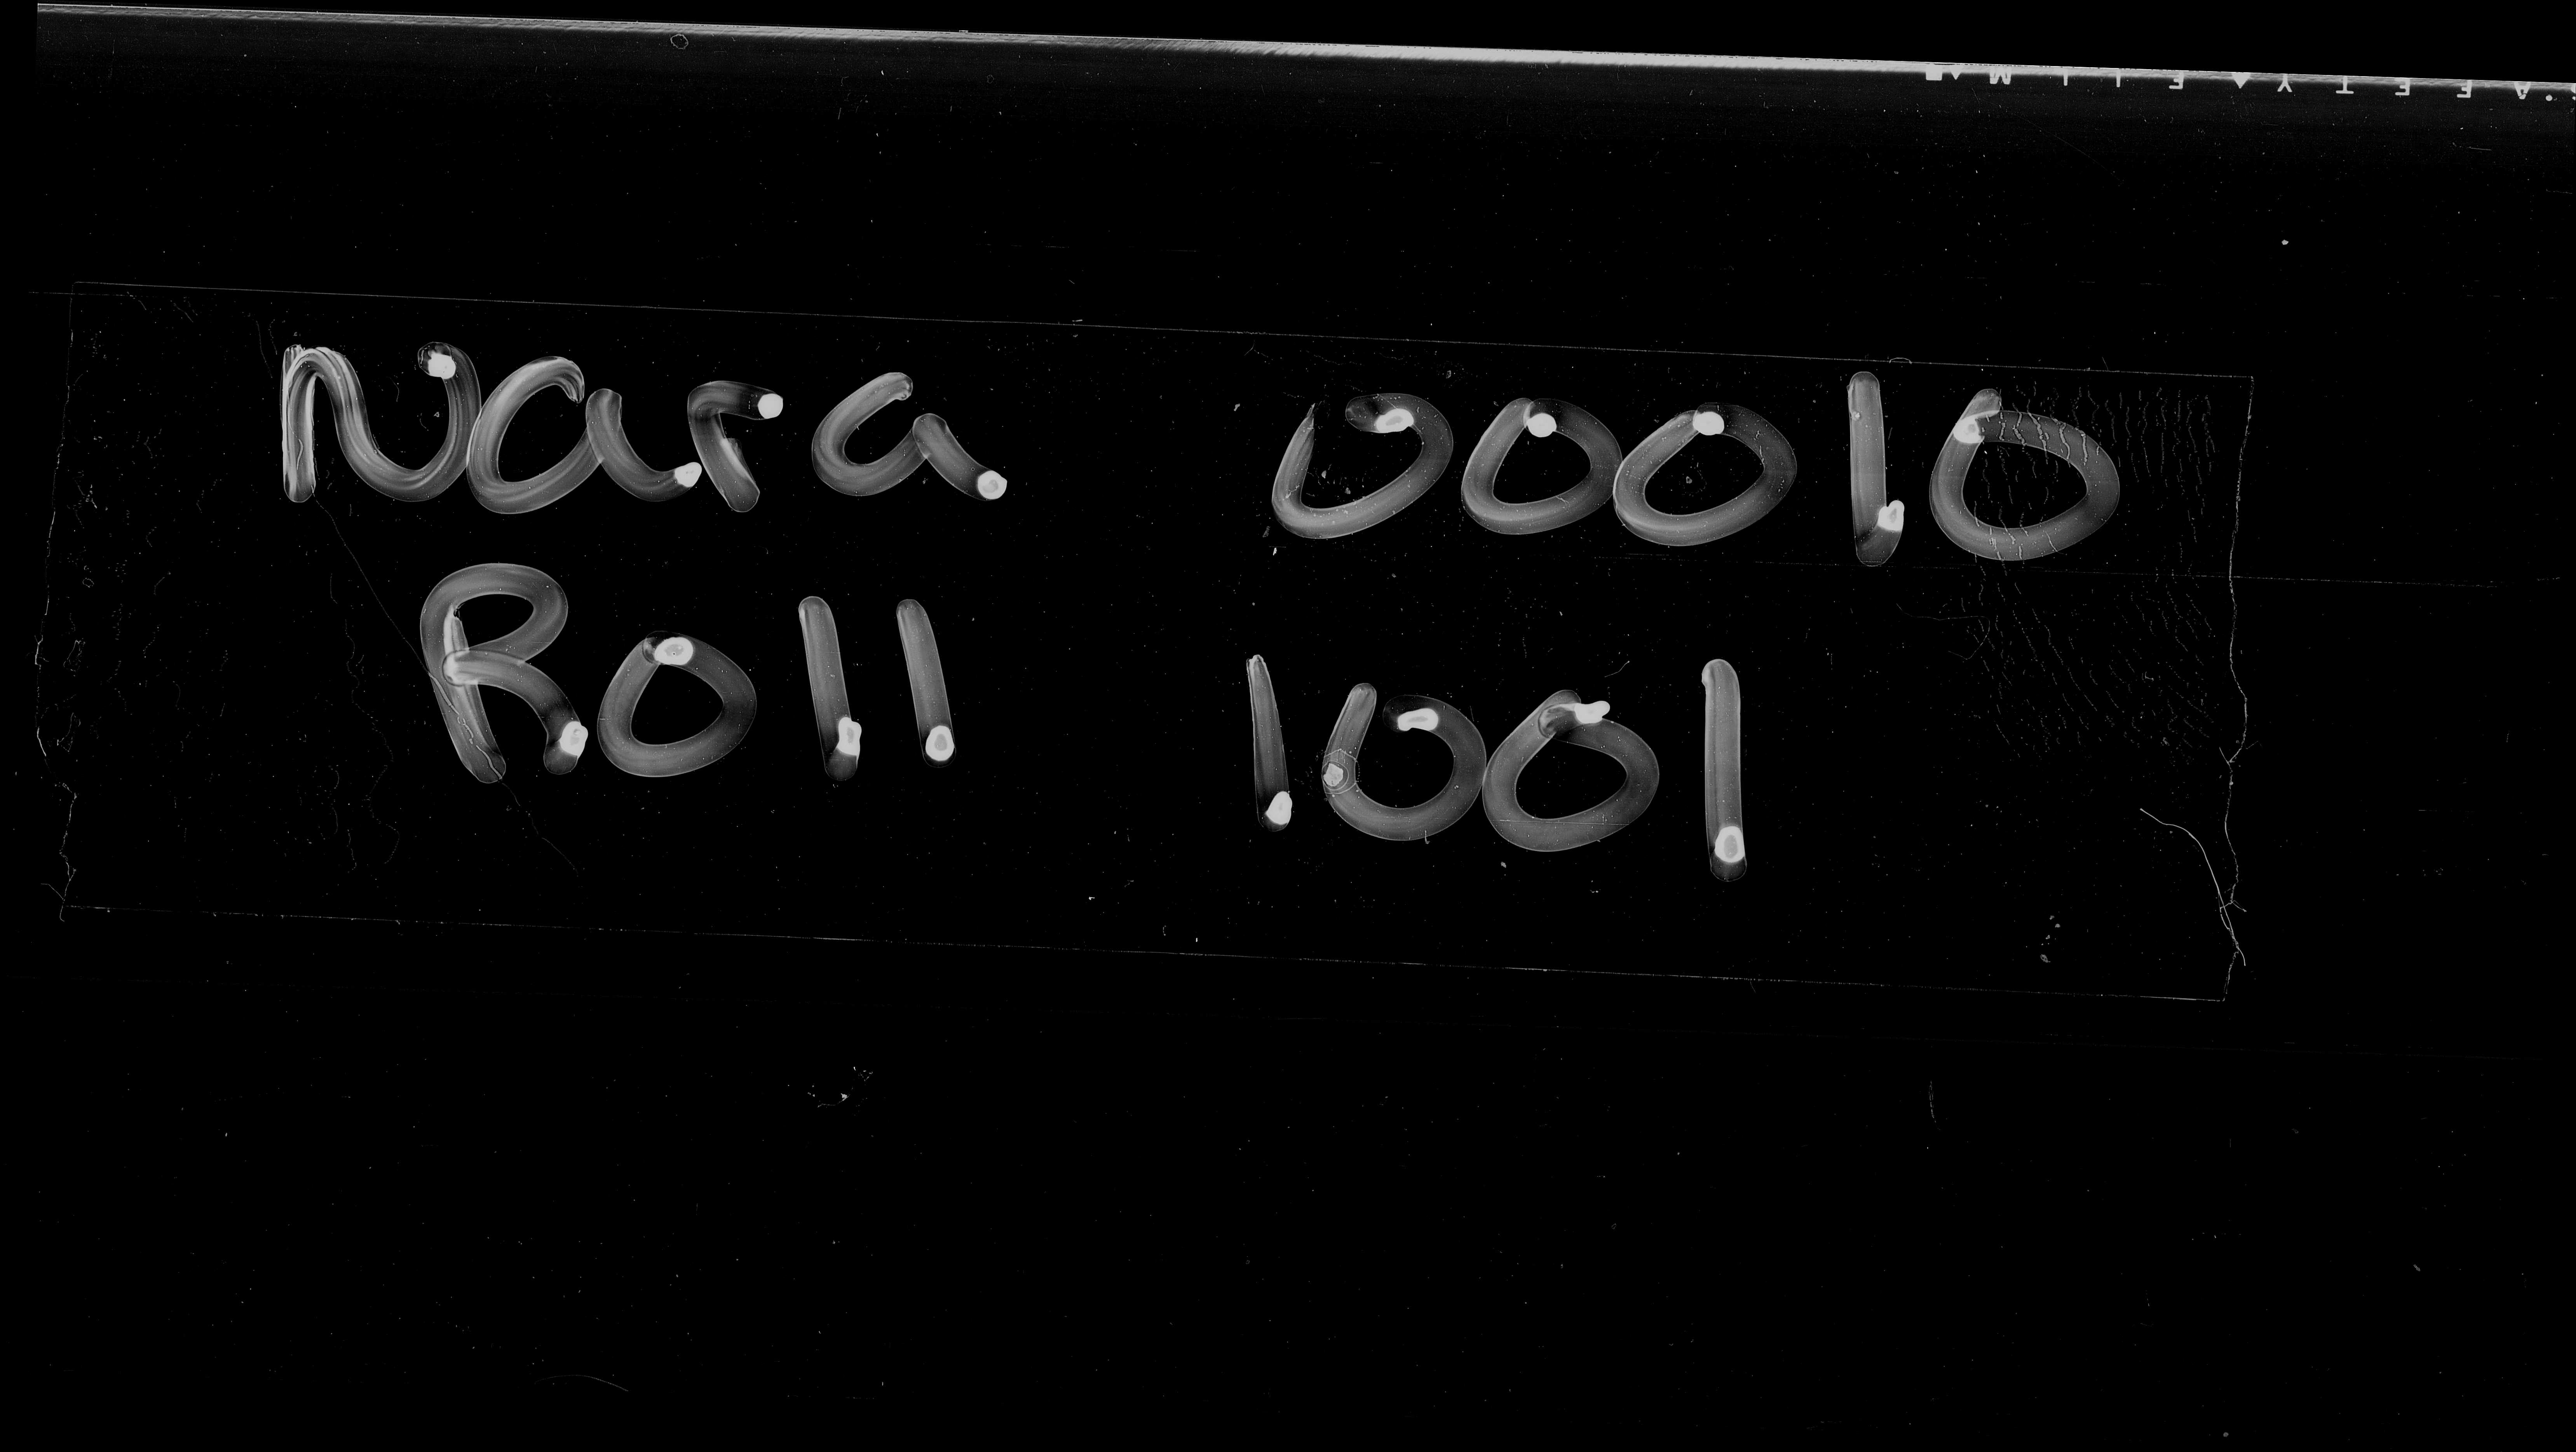 SAFETY FILM
Nara 00010
Roll 1001